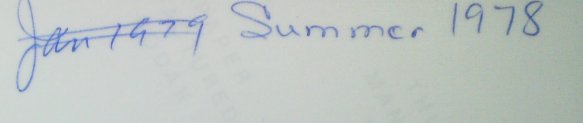 Jan 1979 Summer 1978